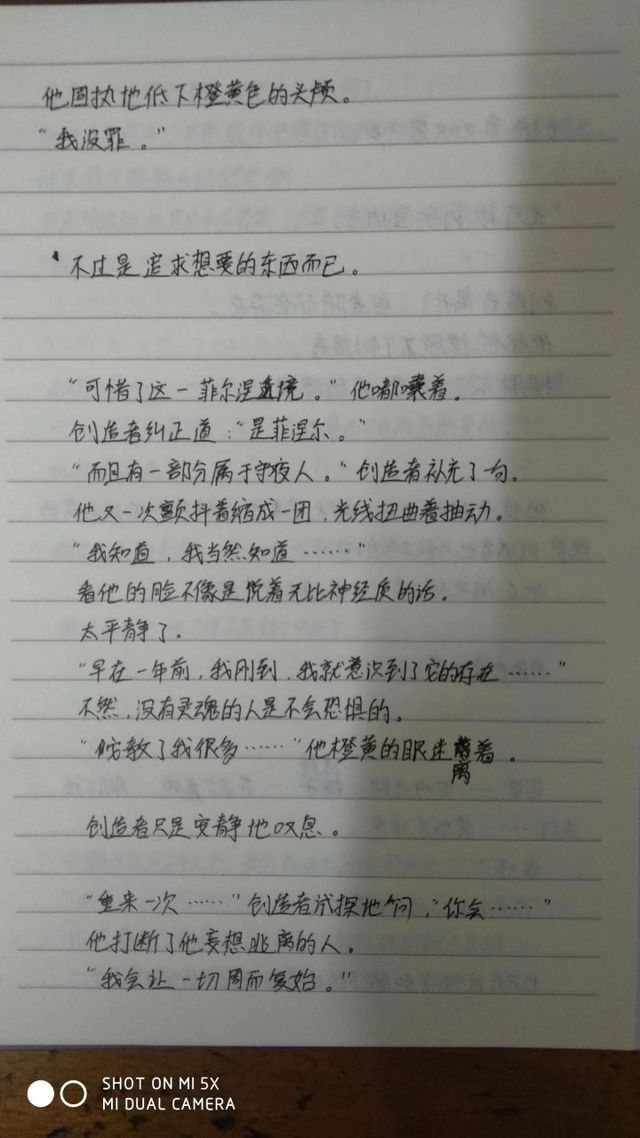 他固执地低下橙黄色的头颅。
“我没罪。”
不过是追求想要的东西而已。
“可惜了这一菲尔涅透境。”他嘟囔着。
创造者纠正道：“是菲涅尔。”
“而且有一部分属于守夜人。”创造者补充了句。
他又一次颤抖着缩成一团，光线扭曲着抽动。
“我知道，我当然知道……”
看他的脸不像是说着无比神经质的话。
太平静了。
“早在一年前，我刚到，我就意识到了它的存在……”
不然，没有灵魂的人是不会恐惧的。
“教了我很多……”他橙黄的眼迷离着。
创造者只是安静地叹息。
“重来一次……”创造者试探地问，“你会……”
他打断了他妄想逃离的人。
“我会让一切周而复始。”
SHOT ON MI 5X
MI DUAL CAMERA